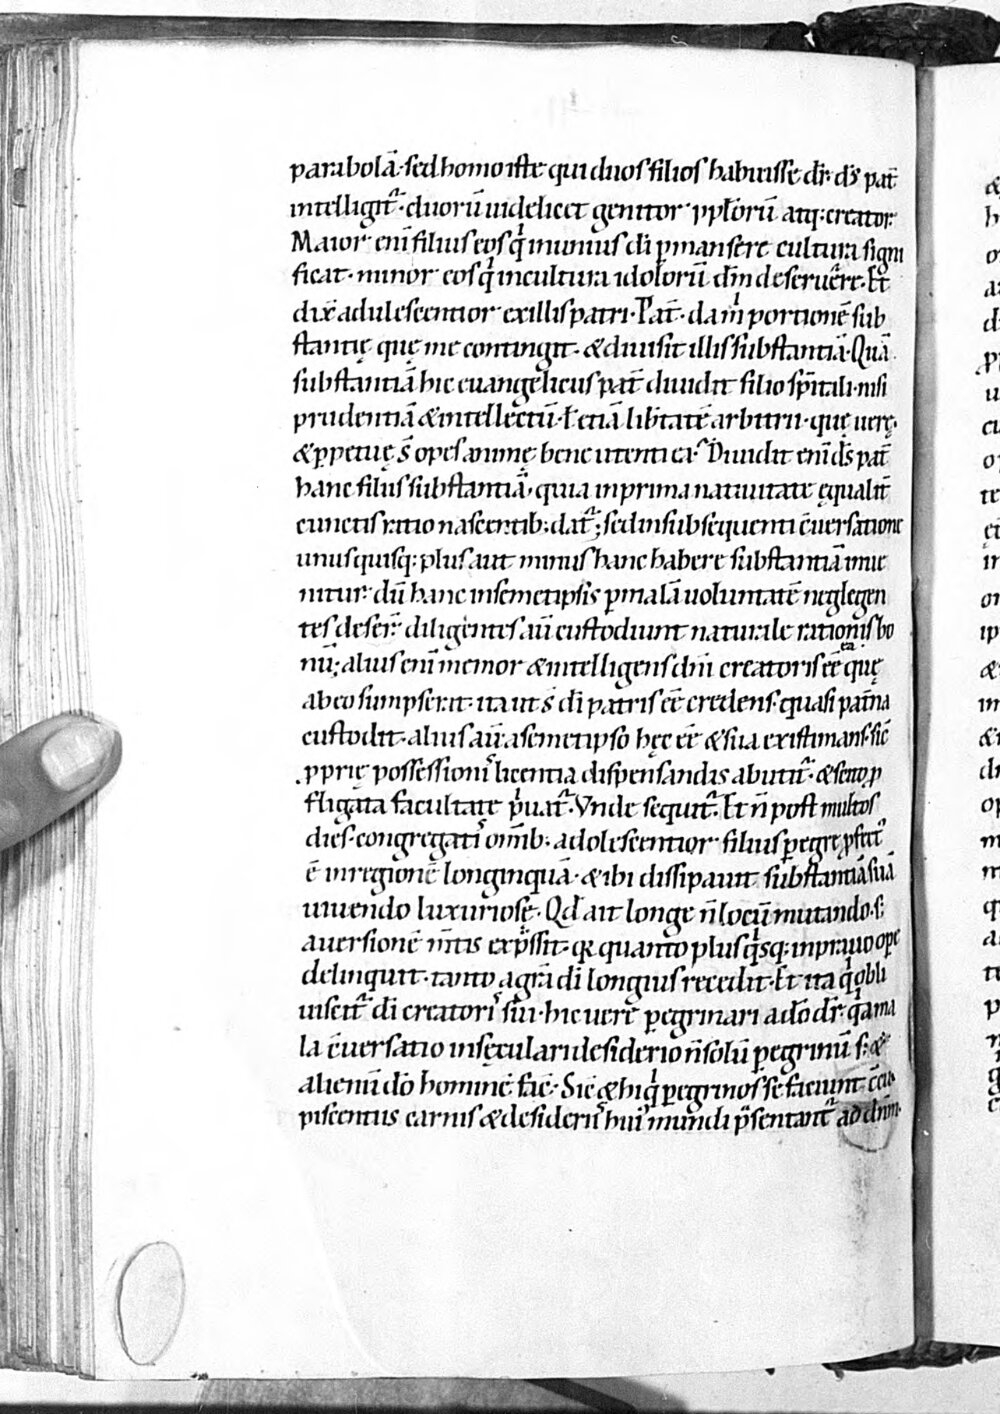 parabolā· sed homo iste qui duos filios habuisse dr̄· ds̄ pat̄
intelligit᷑· duorū uidelicet genitor pplōrū atq; creator·
Maior enī filius eos qͥ in unius dī ꝑmansere cultura signi
ficat· minor eos qͥ in cultura idolorū dm̄ deseruēre· Et
dix̄ adulescentior ex illis patri· Pat̄· da mͥ portionē sub
stantię quę me contingit· & diuisit illis substantiā· Quā
substantiā hic euangelicus pat̄ diuidit filio sp̄itali· nisi
prudentiā & intellectū· ł etiā lib̄tatē arbitrii· quę uerę·
& ꝑpetuę s̄ opes animę bene utenti ea· Diuidit enī ds̄ pat̄
hanc filiis substantiā· quia in prima natiuitate ęqualit̄
cunctis ratio nascentib; dat᷑; sed in subsequenti c̄uersatione
unusquisq; plus aut minus hanc habere substantiā inue
nitur· dū hanc in semetipsis ꝑ malā uoluntatē neglegen
tes deser̄· diligentes aū custodiunt naturale rationis bo
nū; alius enī memor & intelligens dm̄ creatoris eē ea quę
ab eo sumpserit· ita ut s̄ dī patris eē credens· quasi pat̄na
custodit· alius aū a semetipso hęc eē & sua existimans· sic̄
ꝓprię possessionis licentia dispensandis abutit᷑· & seno ꝓ
fligata facultate pͥuat᷑· Vnde sequit᷑· Et n̄ post multos
dies· congregatis om̄ib; adolescentior filius ꝑegre ꝓfect᷒
ē in regionē longinquā· & ibi dissipauit substantiā suā
uiuendo luxuriosę· Qd̄ ait longe n̄ locū mutando· s;
auersionē m̄tis exp̄ssit· qꝛ quanto plus qͥsq; in prauo ope
delinquit· tanto a gr̄a dī longius recedit· Et ita qͥ obli
uiscit᷑ dī creatoris sui· hic uere ꝑegrinari a dō dr̄· qͥa ma
la c̄uersatio in sęculari desiderio n̄ solū ꝑegrinū s; &
alienū dō hominē fac̄· Sic̄ & hi qͥ ꝑegrinos se faciunt c̄cu
piscentiis carnis & desideriis hui᷒ mundi p̄sentant᷑ ad dnm̄·